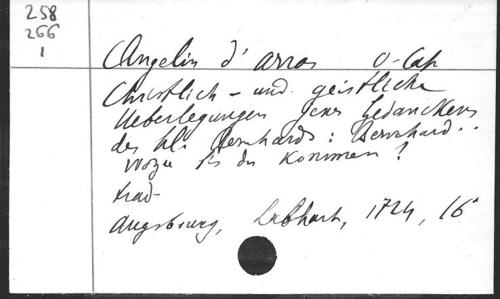 258
266
1
Angelin d'Arras O-Cap
Christlich- und geistliche
Ueberlegungen jenes Gedanckens
des hl. Bernhards: Bernhard..
wozu bis du kommen?
trad-
Augsburg, Labhart, 1724, 16°